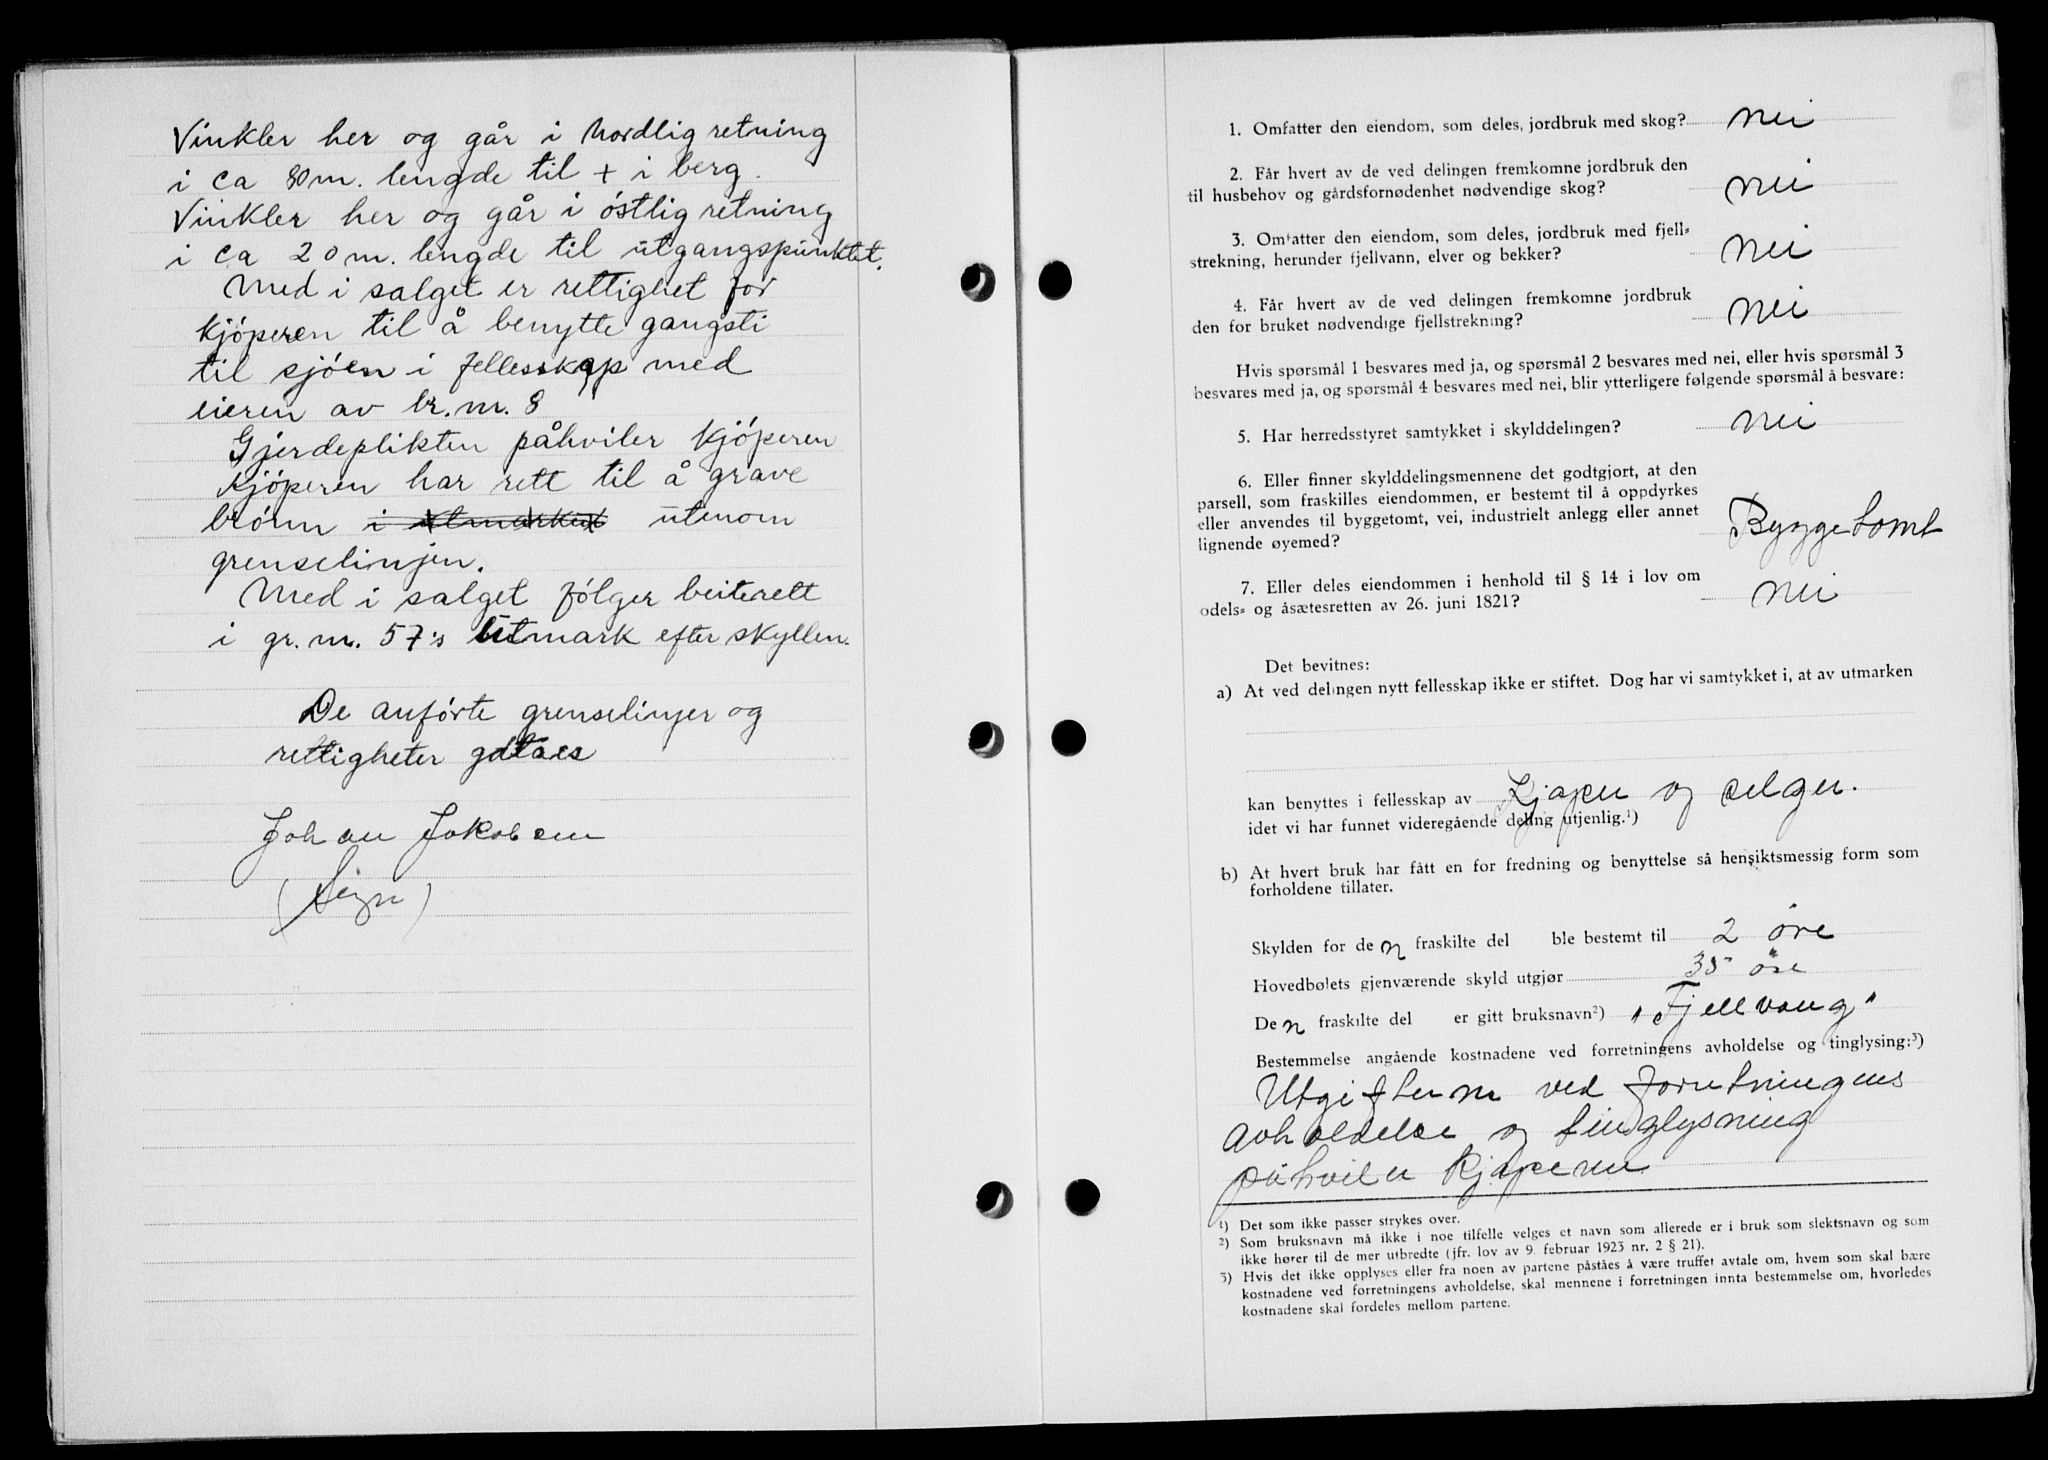 Vinkler her og går i Nordlig retning
i ca 80 m. lengde til + i berg.
Vinkler her og går i östlig retning
i ca 20 m. lengde til utgangspunktet.
Med i salget er rettighet for
kjöperen til å benytte gangsti
til sjöen i fellesskap med
eieren av br. nr. 8
Gjerdeplikten påhviler kjöperen
kjöperen har rett til å grave
brönn i utmarken utenom
grenselinjen.
Med i salget fölger beiterett
i gr. nr. 57's utmark efter skylden.
De anförte grenselinjer og
rettigheter godtaes
Johan Jakobsen
(Sign)
1. Omfatter den eiendom, som deles, jordbruk med skog? nei
2. Får hvert av de ved delingen fremkomne jordbruk den
til husbehov og gårdsfornødenhet nødvendige skog? nei
3. Omfatter den eiendom, som deles, jordbruk med fjell-
strekning, herunder fjellvann, elver og bekker? nei
4. Får hvert av de ved delingen fremkomne jordbruk
den for bruket nødvendige fjellstrekning? nei
Hvis spørsmål 1 besvares med ja, og spørsmål 2 besvares med nei, eller hvis spørsmål 3
besvares med ja, og spørsmål 4 besvares med nei, blir ytterligere følgende spørsmål å besvare:
5. Har herredsstyret samtykket i skylddelingen? nei
6. Eller finner skylddelingsmennene det godtgjort, at den
parsell, som fraskilles eiendommen, er bestemt til å oppdyrkes
eller anvendes til byggetomt, vei, industrielt anlegg eller annet
lignende øyemed? Byggetomt
7. Eller deles eiendommen i henhold til § 14 i lov om
odels- og åsætesretten av 26. juni 1821? nei
Det bevitnes:
a) At ved delingen nytt fellesskap ikke er stiftet. Dog har vi samtykket i, at av utmarken
kan benyttes i fellesskap av Kjøper og selger.
idet vi har funnet videregående deling utjenlig.¹)
b) At hvert bruk har fått en for fredning og benyttelse så hensiktsmessig form som
forholdene tillater.
Skylden for den fraskilte del ble bestemt til 2 øre
Hovedbølets gjenværende skyld utgjør 35 øre
Den fraskilte del er gitt bruksnavn²) "Fjellvang"
Bestemmelse angående kostnadene ved forretningens avholdelse og tinglysing:³)
Utgifterne ved forretningens
avholdelse og tinglysning
påhviler kjøperen
¹) Det som ikke passer strykes over.
²) Som bruksnavn må ikke i noe tilfelle velges et navn som allerede er i bruk som slektsnavn og som
ikke hører til de mer utbredte (jfr. lov av 9. februar 1923 nr. 2 § 21).
³) Hvis det ikke opplyses eller fra noen av partene påståes å være truffet avtale om, hvem som skal bære
kostnadene ved forretningens avholdelse, skal mennene i forretningen innta bestemmelse om, hvorledes
kostnadene skal fordeles mellom partene.